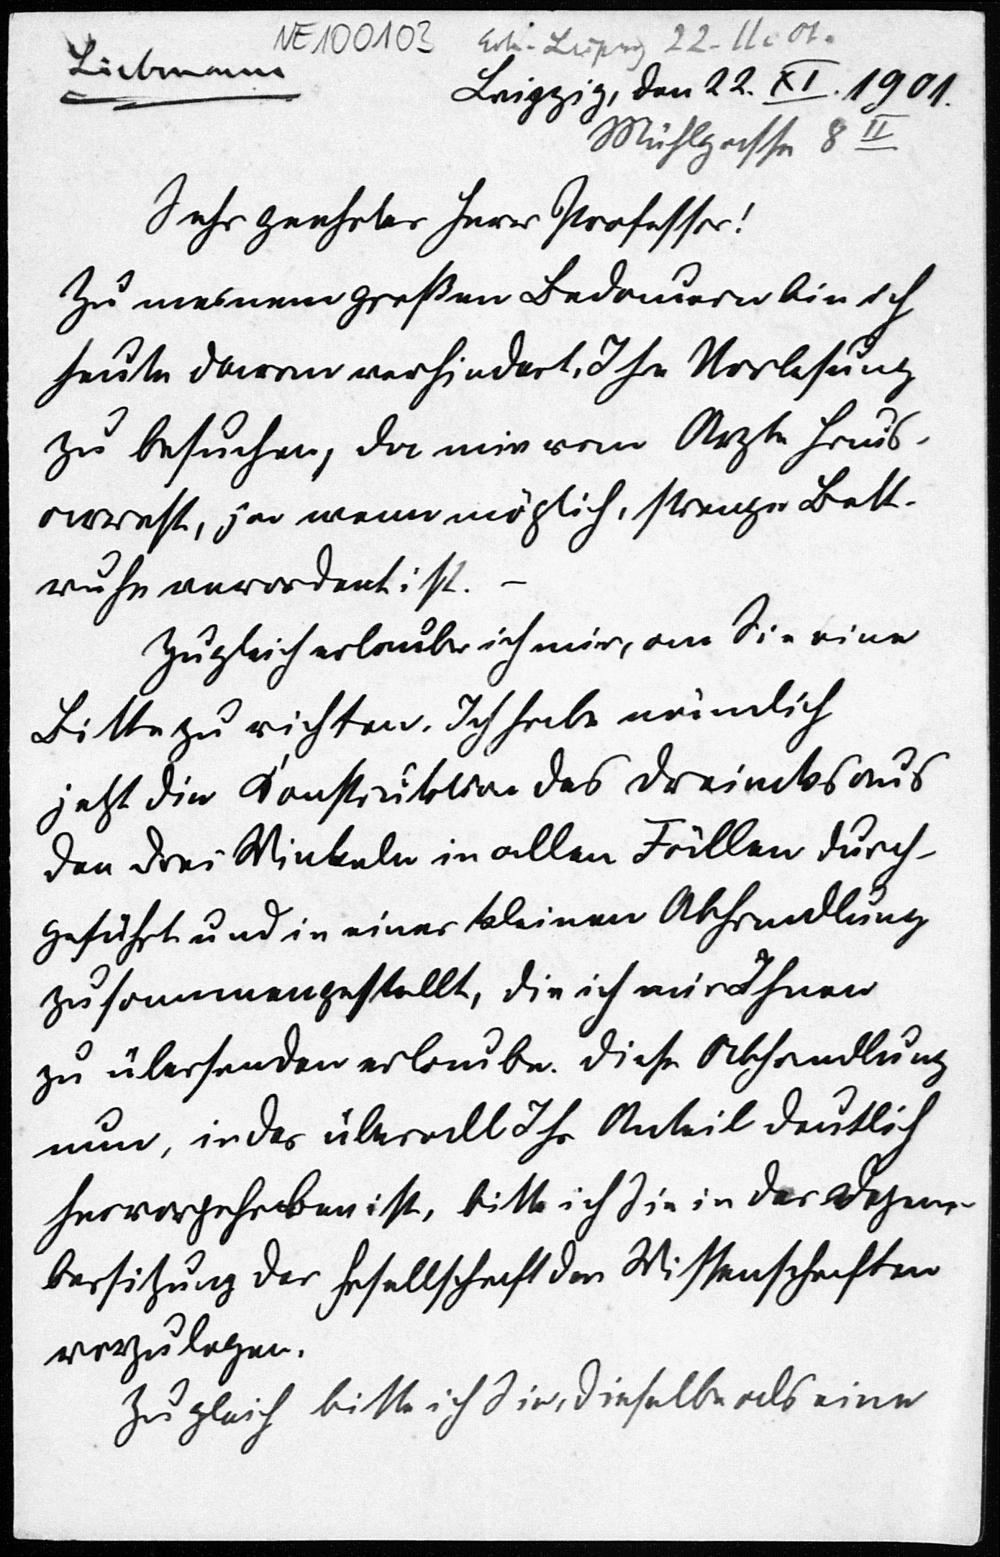 NE100103
Leipzig 22-11.01.
Liebmann
Leipzig, den 22. XI. 1901.
Mühlgasse 8 II
Sehr geehrter Herr Professor!
Zu meinem großen Bedauern bin ich
heute daran verhindert, Ihre Vorlesung
zu besuchen, da mir vom Arzte Haus-
arrest, ja wenn möglich, strenge Bett-
ruhe anverordent ist. –
Zugleich erlaube ich mir, an Sie eine
Bitte zu richten. Ich habe nämlich
jetzt die Konstruktion des Dreiecks aus
den drei Winkeln in allen Fällen durch-
geführt und in einer kleinen Abhandlung
zusammengestellt, die ich mir Ihnen
zu übersenden erlaube. Diese Abhandlung
nun, in der überall Ihr Anteil deutlich
hervorgehoben ist, bitte ich Sie in der Dezem-
bersitzung der Gesellschaft der Wissenschaften
vorzulegen.
Zugleich bitte ich Sie, dieselbe als eine